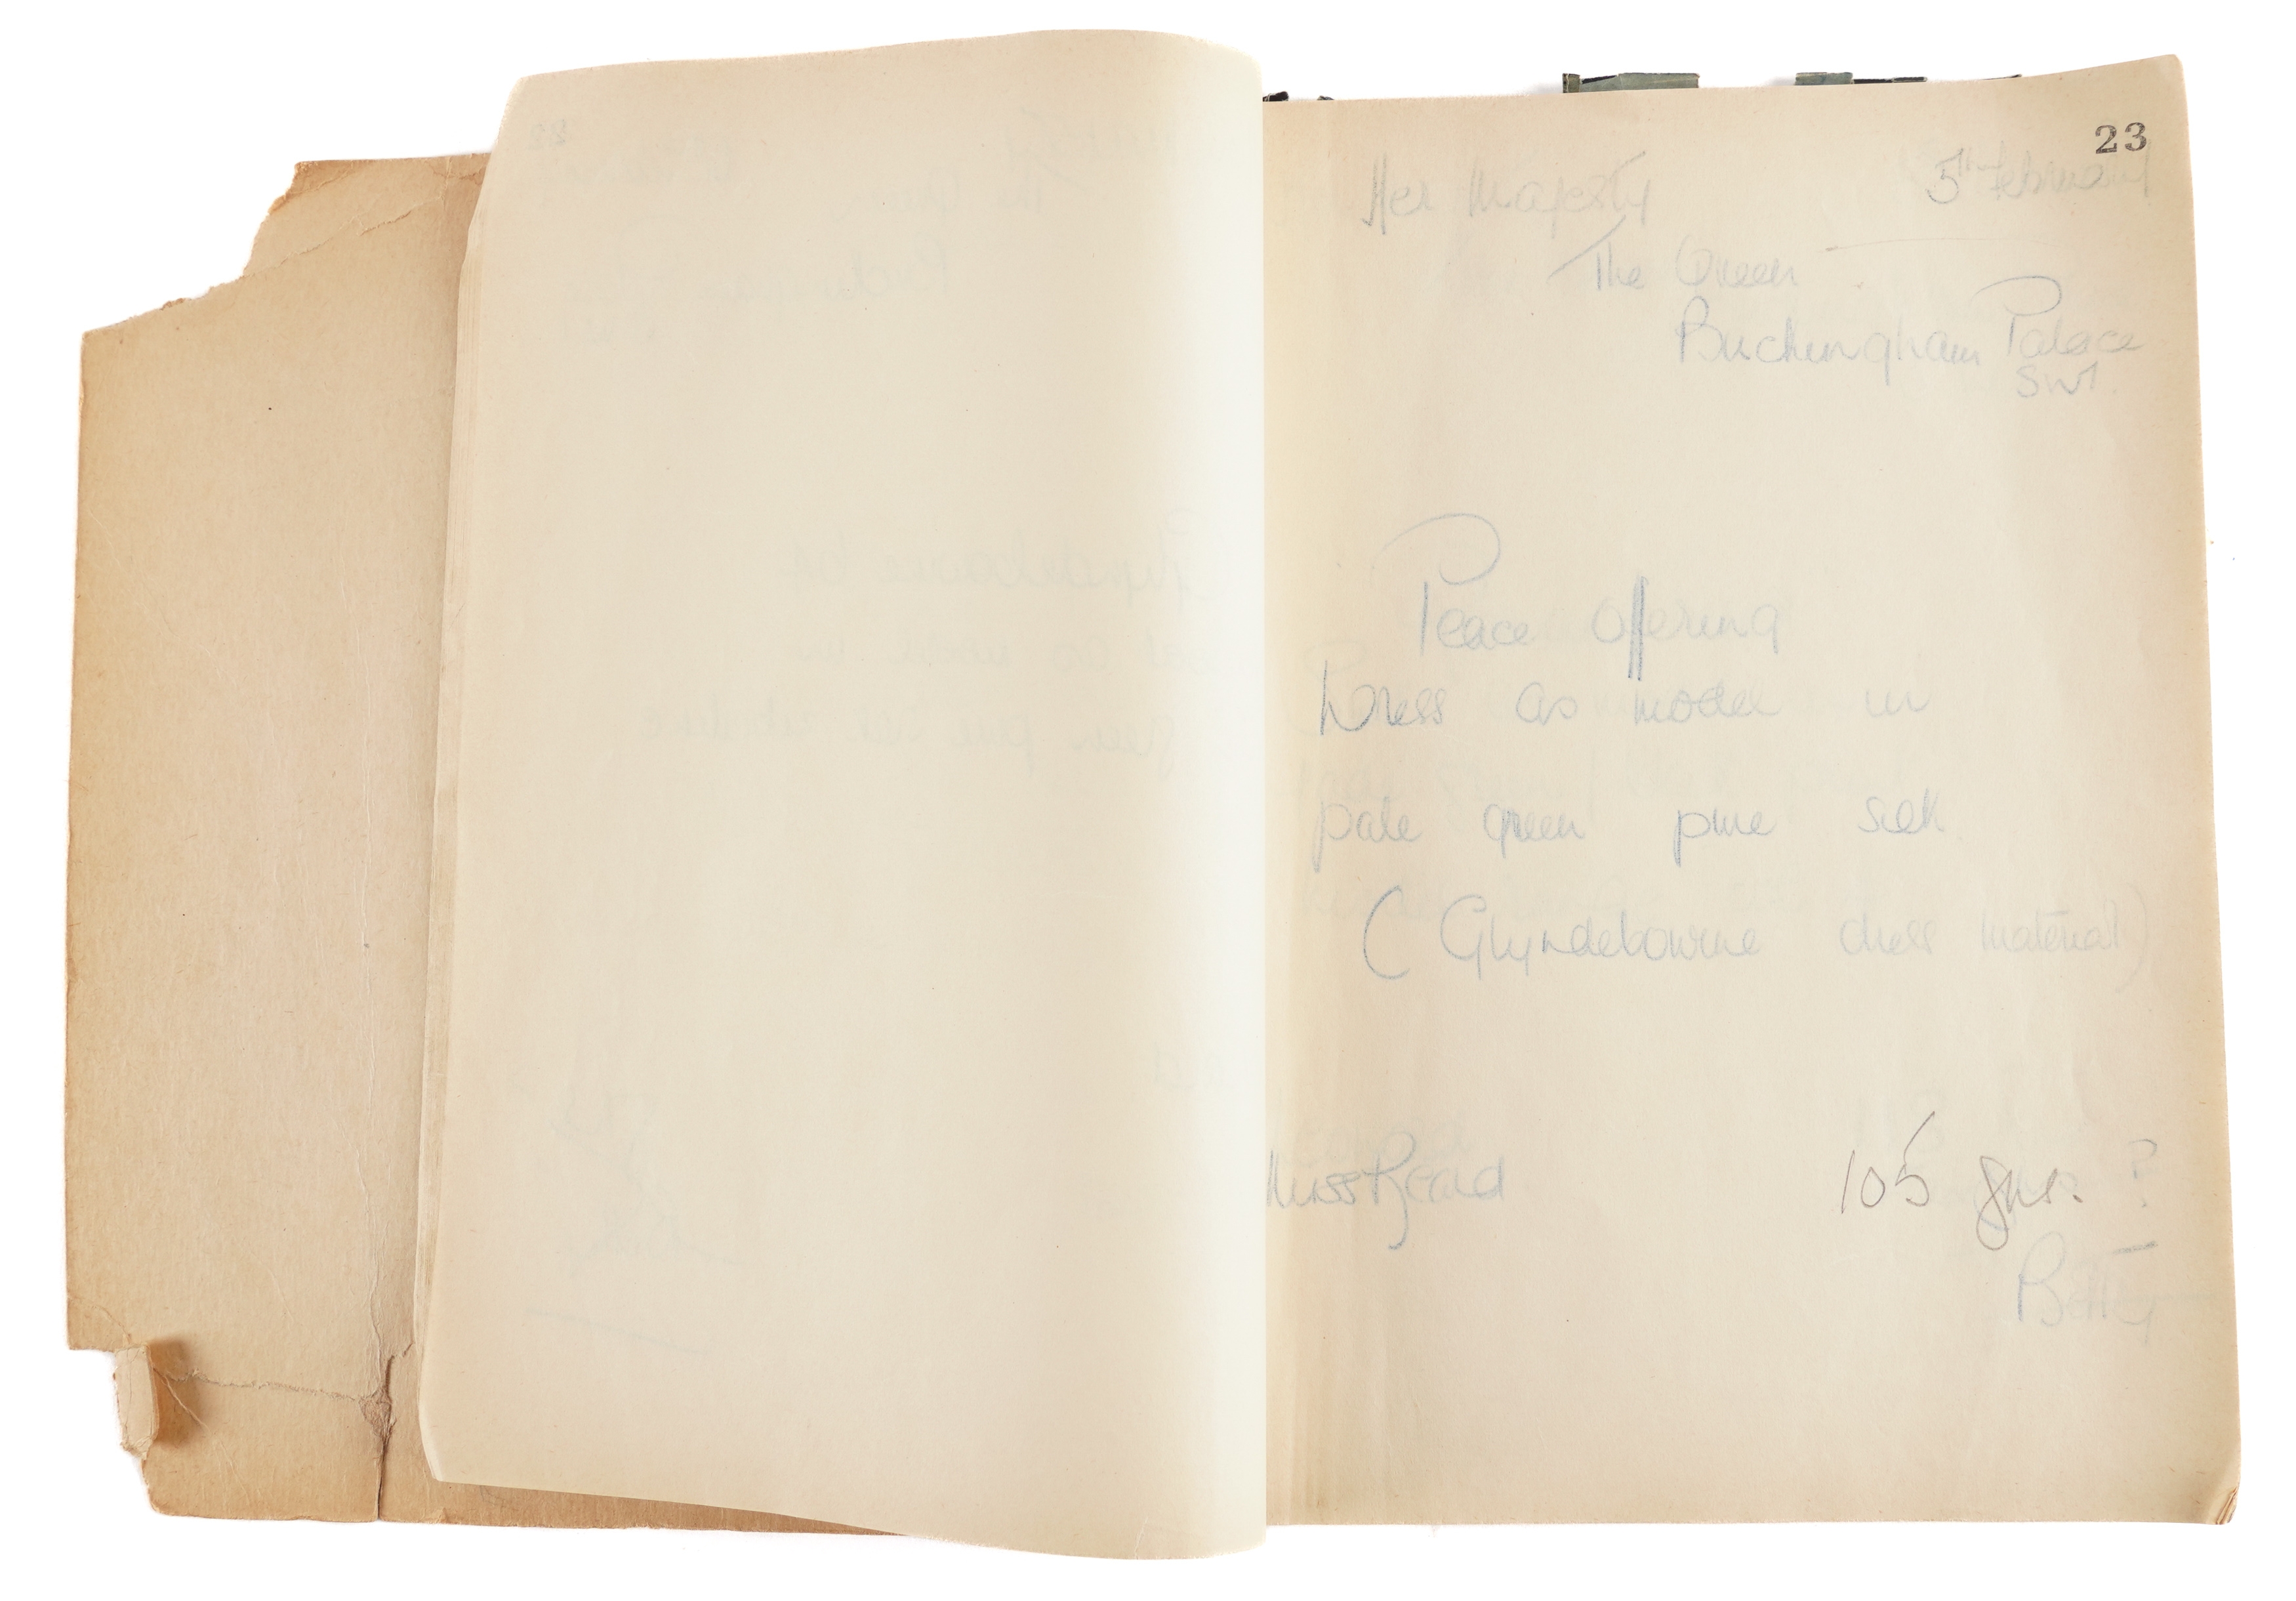 23
Her Majesty 5th February
The Queen.
Buckingham Palace
SW1.
Peace offering
Dress as model in
pale green pure silk
(Glyndebourne dress material)
Miss Beard 105 gns. ?
Betty